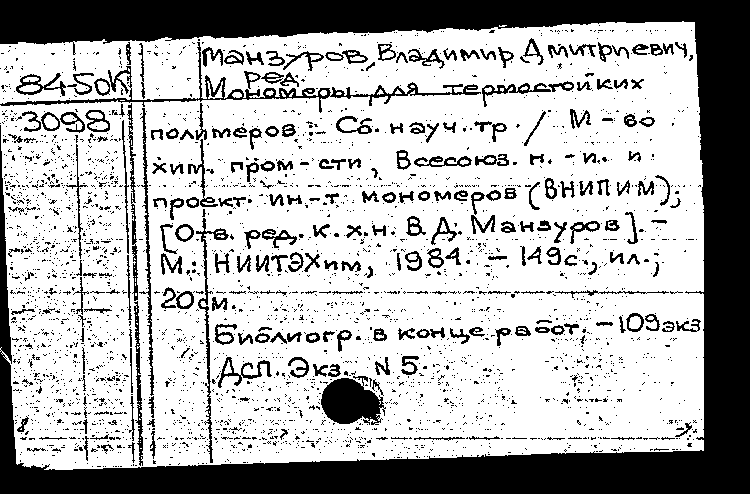 Манзуров, Владимир Дмитриевич,
ред.
84-50К
Мономеры для термостойких
3098
полимеров : Сб. науч. тр. / М-во
хим. пром-сти, Всесоюз. н.-и. и
проект. ин.-т мономеров (ВНИПИМ);
[Отв. ред. к.х.н. В.Д. Манзуров]. -
М.: НИИТЭХим, 1984. - 149с., ил.;
20см.
Библиогр. в конце работ. - 109экз
ДСП. Экз. N 5.